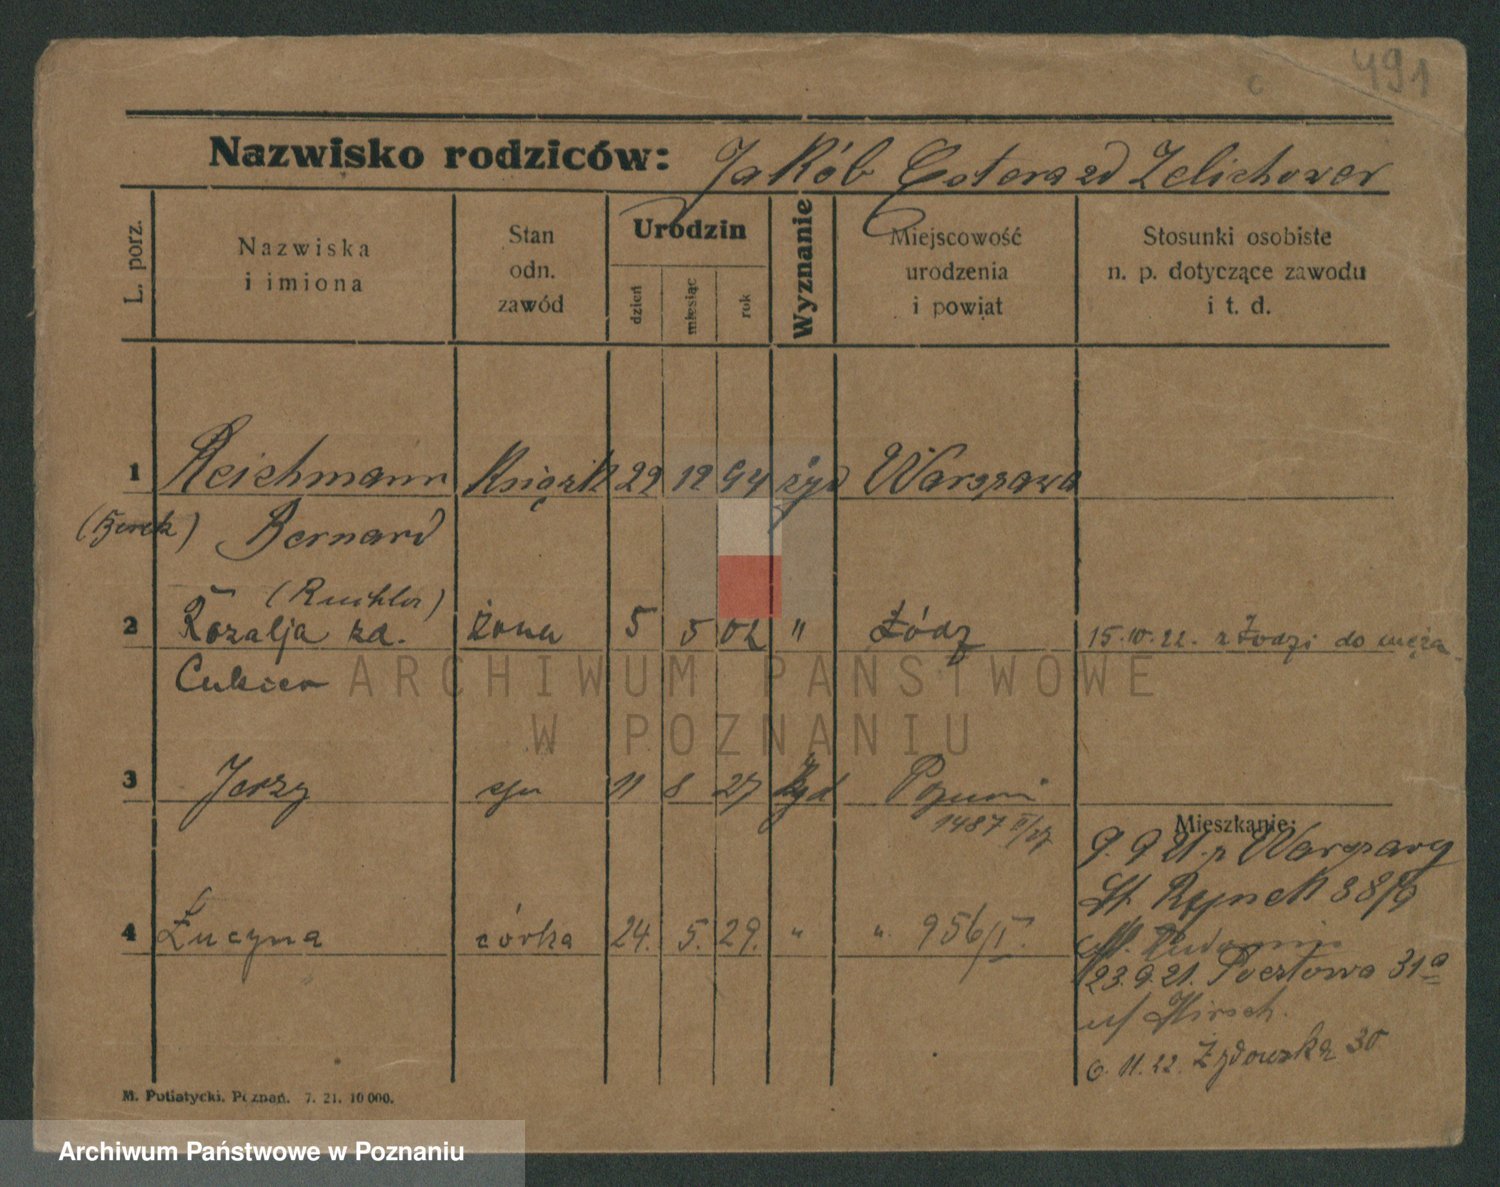 491
Nazwisko rodziców: Jakób Estera zd Zelichower
L. porz.
Nazwiska
i imiona
Stan
odn.
zawód
Urodzin
dzień
miesiąc
rok
Wyznanie
Miejscowość
urodzenia
i powiat
Stosunki osobiste
n. p. dotyczące zawodu
i t. d.
1 Reichmann 29 12 94 żyd Warszawa
(Berek) Bernard
(Ruchla)
2 Rozalja zd. żona 5 5 02 " Łódz 15.10.22. z Łodzi do męża
Cukier
3 Jerzy syn 11 8 27 żyd Poznań
1487 II/27
Mieszkanie:
9.9 21. z Warszawy
St. Rynek 38/9
4 Łucyna córka 24. 5. 29. " " 956/I.
23.9.21. Pocztowa 31a
u/ Hirsch.
6.11.22. Żydowska 30
M. Putiatycki, Poznań. 7. 21. 10 000.
ARCHIWUM PAŃSTWOWE
W POZNANIU
Archiwum Państwowe w Poznaniu